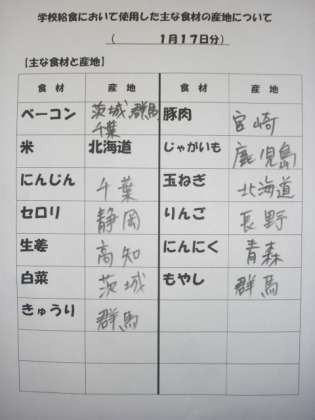 学校給食において使用した主な食材の産地について
( 1月17日分)
【主な食材と産地】
食 材 産 地 食 材 産 地
ベーコン 茨城 群馬 千葉 豚肉 宮崎
米 北海道 じゃがいも 鹿児島
にんじん 千葉 玉ねぎ 北海道
セロリ 静岡 りんご 長野
生姜 高知 にんにく 青森
白菜 茨城 もやし 群馬
きゅうり 群馬